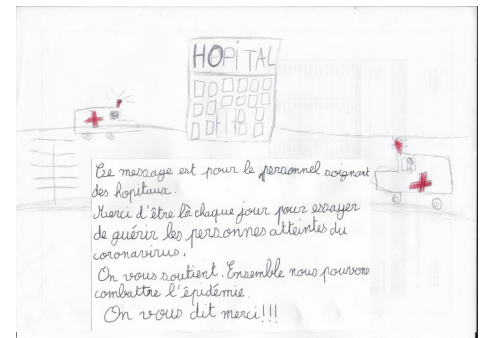 HOPITAL
Ce message est pour le personnel soignant
des hopitaux.
Merci d'être là chaque jour pour essayer
de guérir les personnes atteintes du
coronavirus.
On vous soutient. Ensemble nous pouvons
combattre l'épidémie.
On vous dit merci!!!